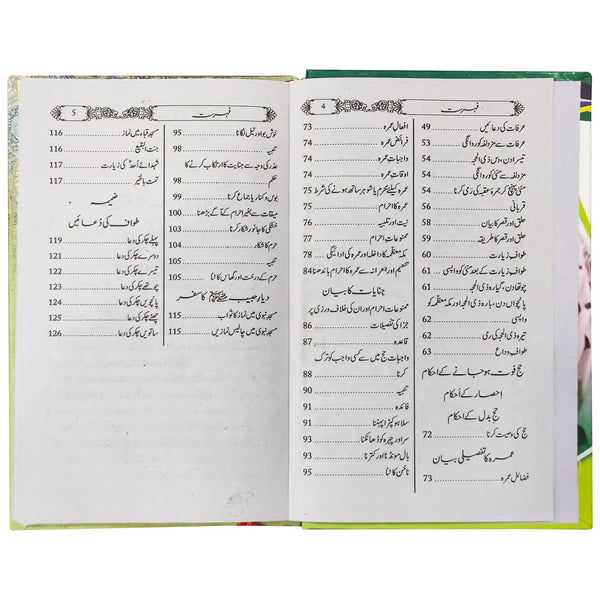 4
فہرست
عرفات کی دعائیں 49
عرفات سے مزدلفہ کو روانگی 53
تیسرا دن، دس ذی الحجہ 54
مزدلفہ سے منیٰ کو روانگی 54
منیٰ پہنچ کر جمرۂ عقبہ کی رمی کرنا 54
قربانی 56
حلق اور قصر کا بیان 58
حلق اور قصر کا طریقہ 59
طواف زیارت 60
طواف زیارت کے بعد منیٰ کو واپسی 61
چوتھا دن، گیارہ ذی الحجہ 61
پانچواں دن، بارہ ذی الحجہ اور مکہ معظمہ کو
واپسی 62
تیرہ ذی الحجہ کی رمی 62
طواف وداع 63
حج فوت ہو جانے کے احکام
احصار کے احکام
حج بدل کے احکام
حج کی وصیت کرنا 72
عمرہ کا تفصیلی بیان
فضائل عمرہ 73
افعال عمرہ 73
فرائض عمرہ 74
واجبات عمرہ 74
اوقات عمرہ 74
عمرہ کیلئے محرم یا شوہر ساتھ ہونے کی شرط 75
عمرہ کا احرام 75
نیت اور تلبیہ 76
ممنوعات احرام 77
مکہ معظمہ کا داخلہ اور عمرہ کی ادائیگی 78
تنعیم اور جعرانہ سے عمرہ کا احرام باندھنا 84
جنایات کا بیان
ممنوعات احرام اور ان کی خلاف ورزی پر
جزا کی تفصیلات 86
قاعدہ 87
واجبات حج میں سے کسی واجب کو ترک
کرنا 88
تنبیہ 90
فائدہ 91
سلا ہو کپڑا پہننا 91
سر اور چہرہ کو ڈھانکنا 93
بال مونڈنا اور کترنا 93
ناخن کاٹنا 95
5
فہرست
خوشبو اور تیل لگانا 95
تنبیہ 98
عذر کی وجہ سے جنایت کا ارتکاب کرنے کا
حکم 98
بوس و کنار یا جماع کرنا 99
میقات سے بغیر احرام کے آگے بڑھنا 100
خشکی کا جانور شکار کرنا 103
حرم کا شکار 104
تنبیہ 105
حرم کے درخت اور گھاس کاٹنا 105
دیار حبیب ﷺ کا سفر
مسجد نبوی میں نماز کا ثواب 115
مسجد نبوی میں چالیس نمازیں 115
مسجد قباء میں نماز 116
جنت البقیع 116
شہدائے اُحد کی زیارت 117
تمت بالخیر 117
ضمیمہ
طواف کی دُعائیں
پہلے چکر کی دعا 119
دوسرے چکر کی دعا 120
تیسرے چکر کی دعا 121
چوتھے چکر کی دعا 122
پانچویں چکر کی دعا 123
چھٹے چکر کی دعا 125
ساتویں چکر کی دعا 126